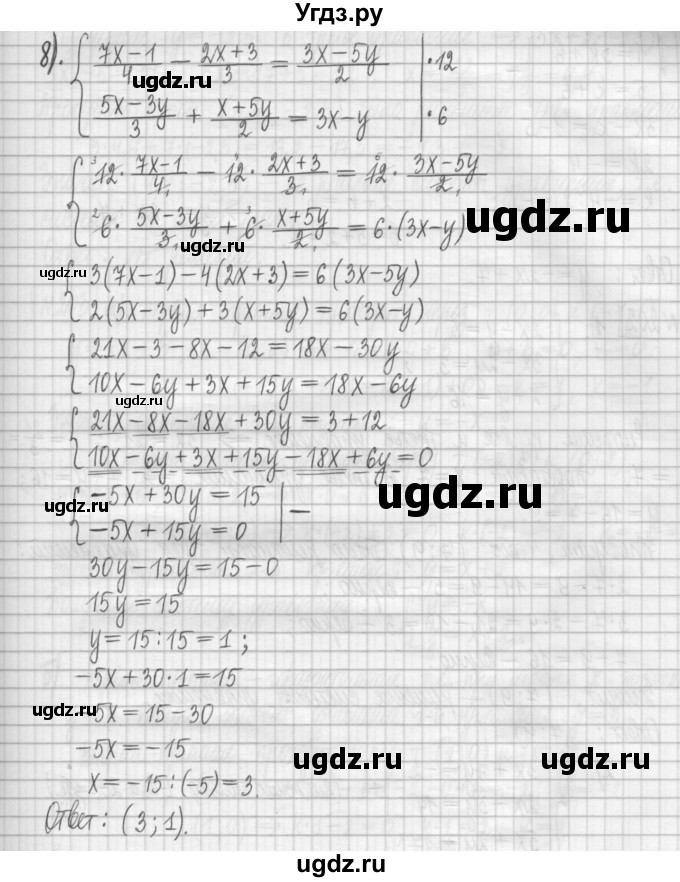 Угдз.ру
8). { (7x-1)/4 - (2x+3)/3 = (3x-5y)/2 | ·12
ugdz.ru
(5x-3y)/3 + (x+5y)/2 = 3x-y | ·6
{ ³12 · (7x-1)/4₁ - ⁴12 · (2x+3)/3₁ = ⁶12 · (3x-5y)/2₁
²6 · (5x-3y)/3₁ + ³6 · (x+5y)/2₁ = 6·(3x-y)
ugdz.ru
ugdz.ru
{ 3(7x-1)-4(2x+3)=6(3x-5y)
2(5x-3y)+3(x+5y)=6(3x-y)
{ 21x-3-8x-12=18x-30y
10x-6y+3x+15y=18x-6y
ugdz.ru
{ 21x-8x-18x+30y=3+12
10x-6y+3x+15y-18x+6y=0
{ -5x+30y=15 | -
ugdz.ru
ugdz.ru
-5x+15y=0
30y-15y=15-0
15y=15
y=15:15=1;
-5x+30·1=15
ugdz.ru
-5x=15-30
-5x=-15
ugdz.ru
ugdz.ru
x=-15:(-5)=3.
Ответ: (3;1).
ugdz.ru